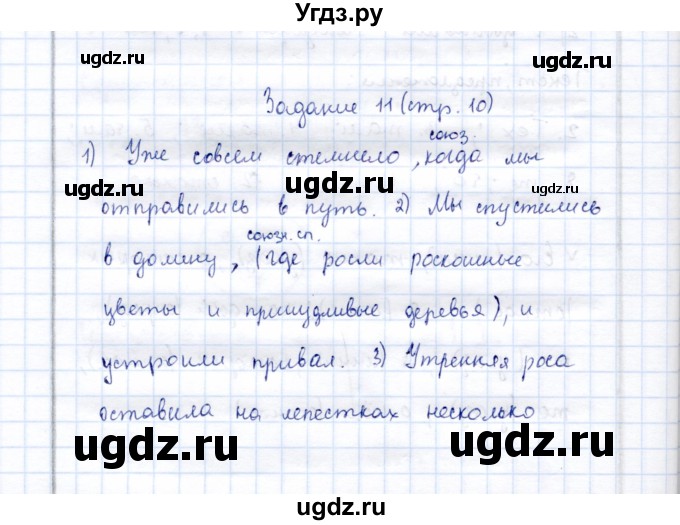 Угдз.ру
ugdz.ru
ugdz.ru
Задание 11 (стр. 10)
союз.
1) Уже совсем стемнело, когда мы
ugdz.ru
ugdz.ru
отправились в путь. 2) Мы спустились
союзн. сл.
в долину, (где росли роскошные
цветы и причудливые деревья), и
устроили привал. 3) Утренняя роса
оставила на лепестках несколько
ugdz.ru
ugdz.ru
ugdz.ru